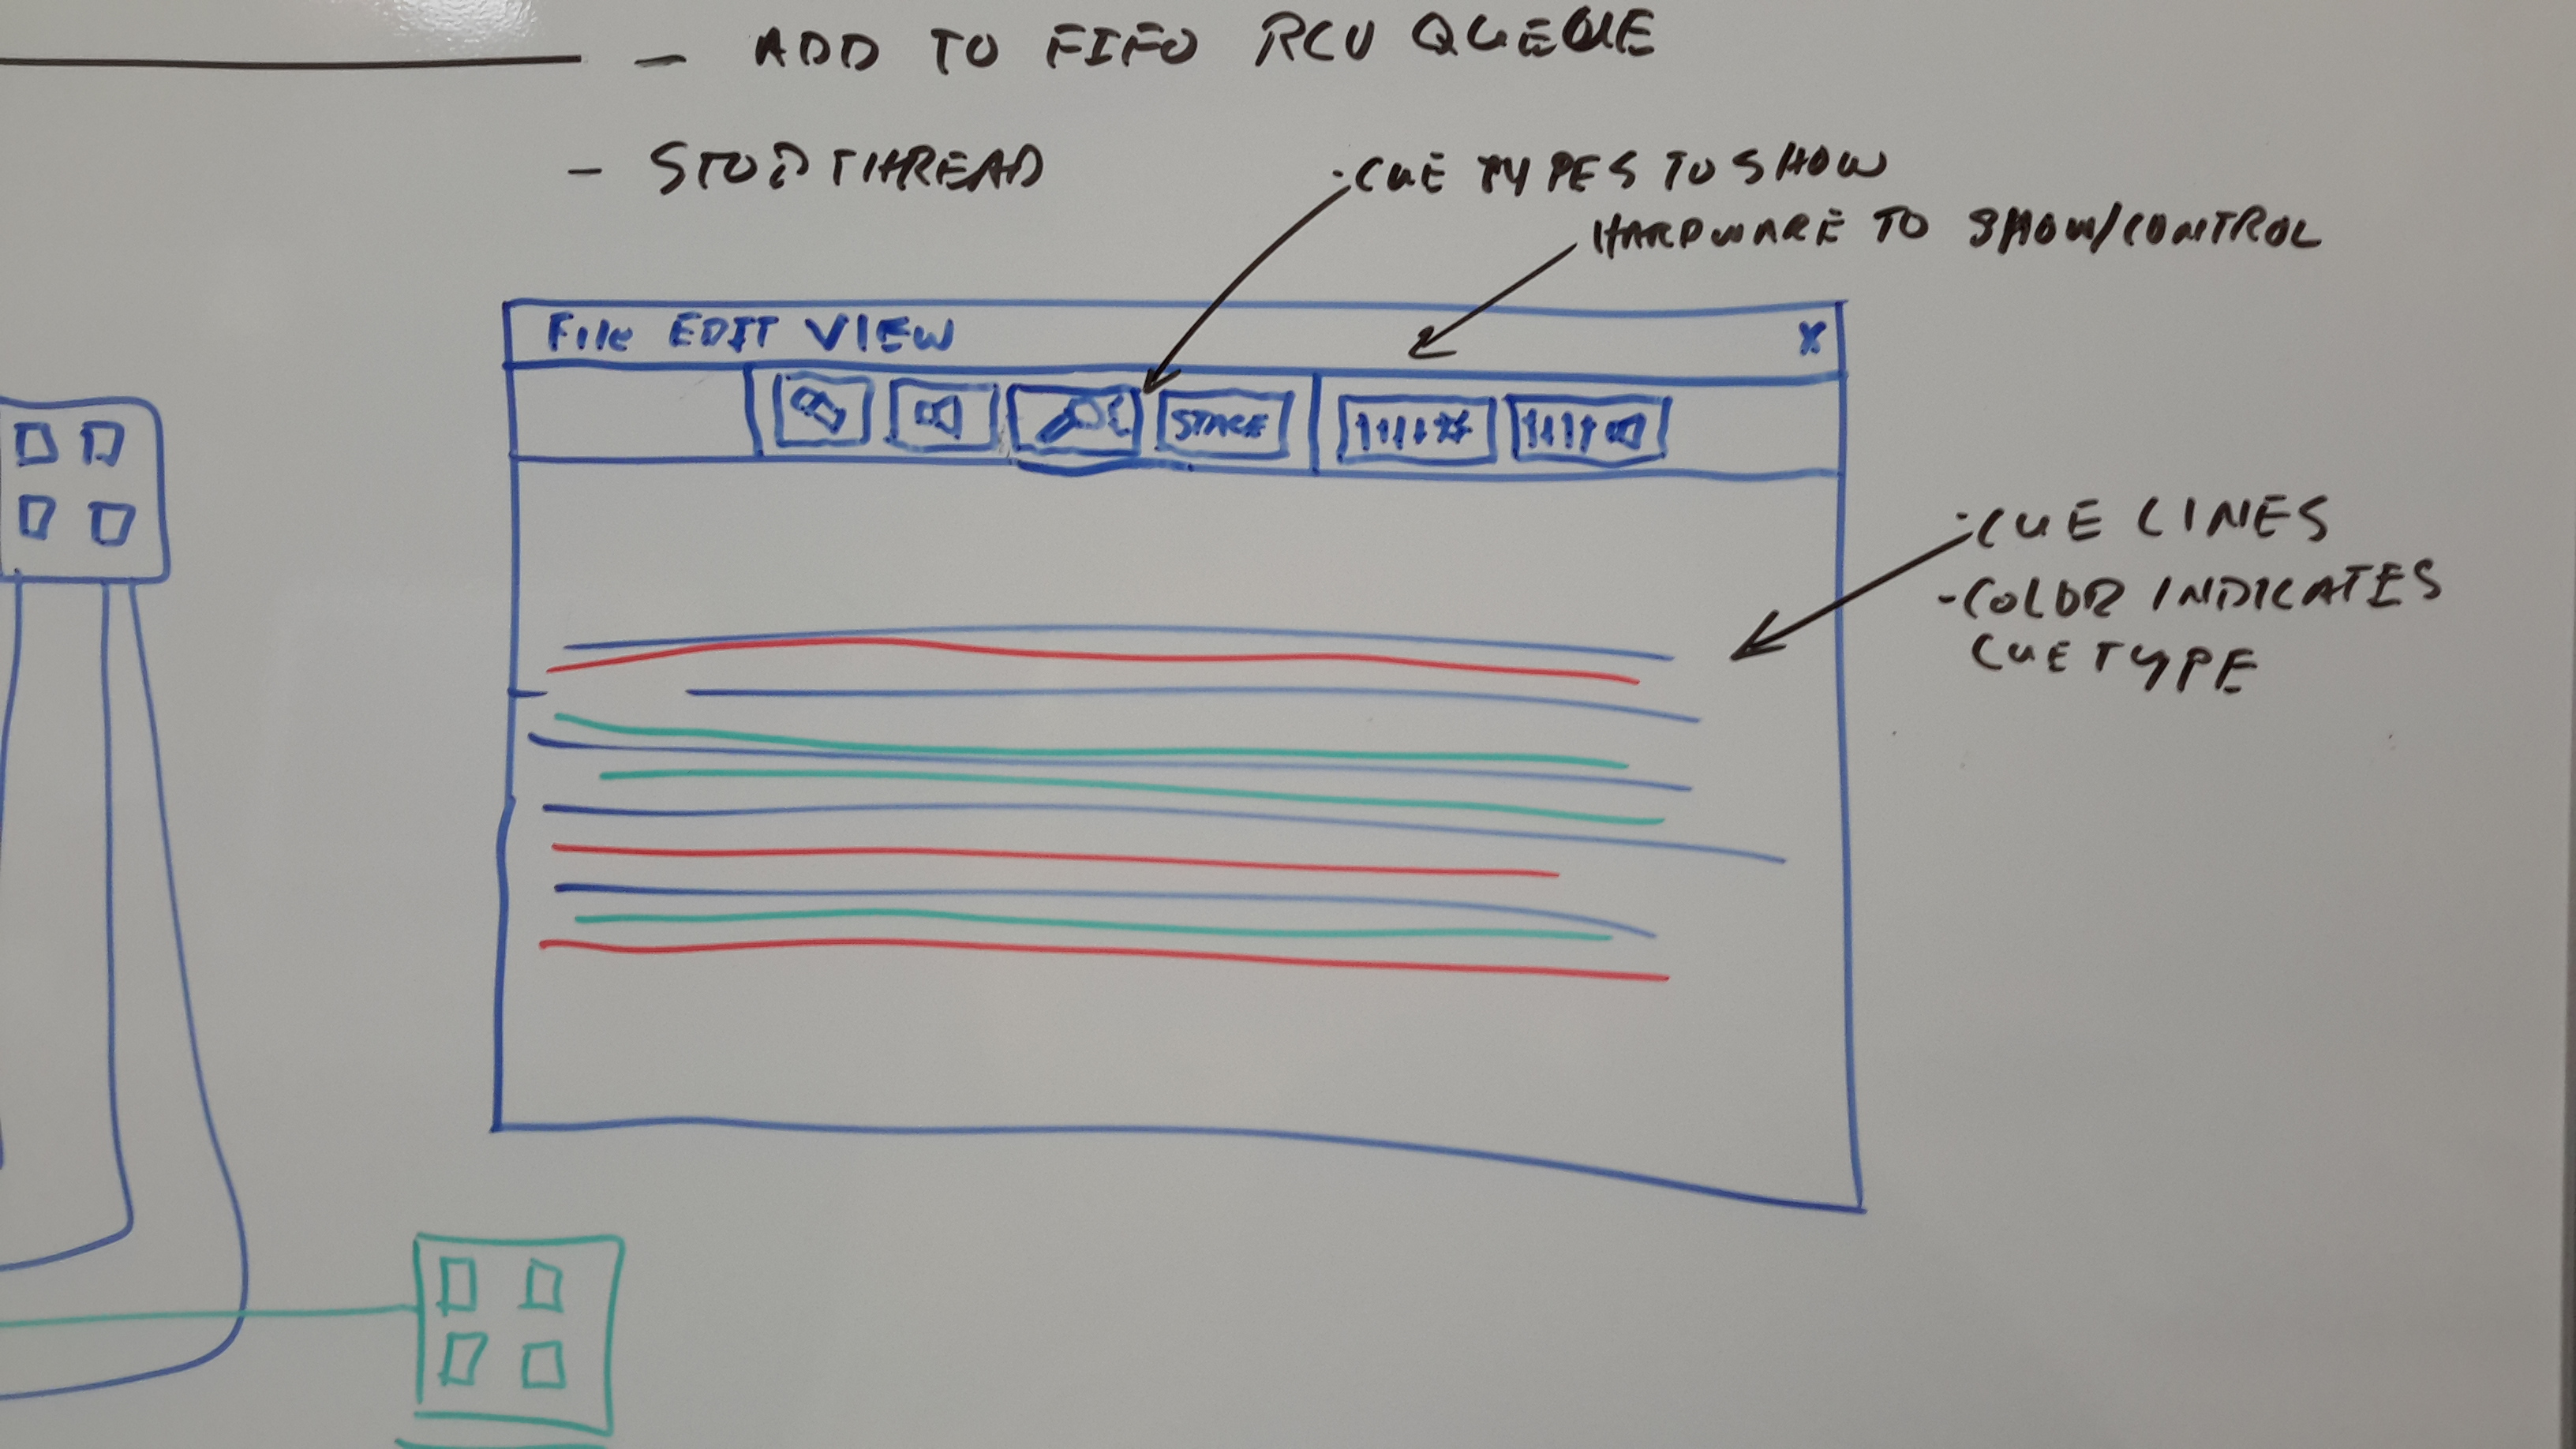 - ADD TO FIFO RCV QUEUE
- STOP THREAD
· CUE TYPES TO SHOW
HARDWARE TO SHOW/CONTROL
File EDIT VIEW X
STAGE
· CUE LINES
- COLOR INDICATES
CUE TYPE